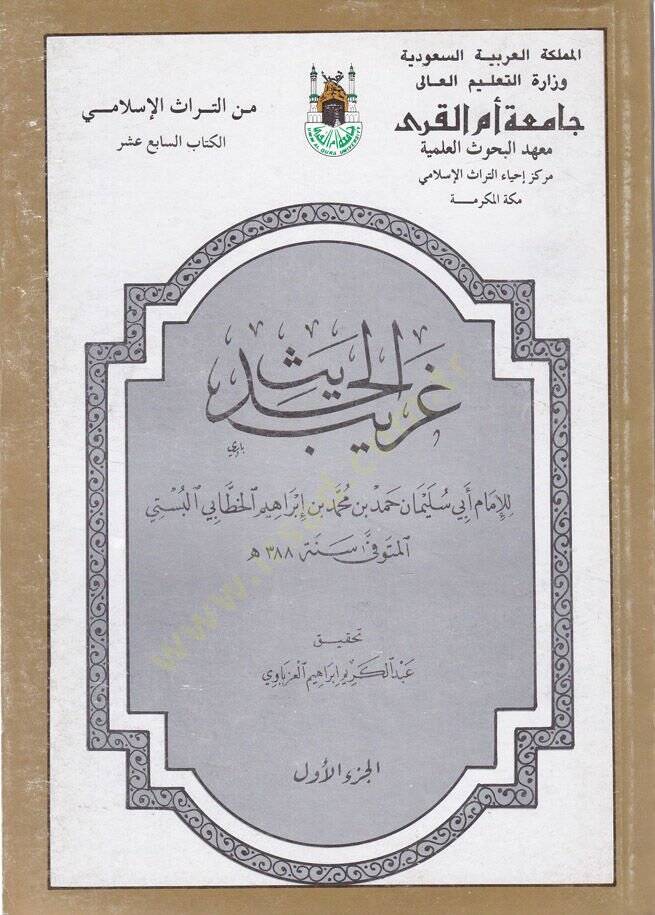 المملكة العربية السعودية
وزارة التعليم العالى
جامعة أم القرى
معهد البحوث العلمية
مركز إحياء التراث الإسلامي
مكة المكرمة
من التراث الإسلامي
الكتاب السابع عشر
UMM AL QURA UNIVERSITY
غريب الحديث
للإمام أبي سليمان حمد بن محمد بن إبراهيم الخطابي البستي
المتوفى سنة ٣٨٨ هـ
تحقيق
عبد الكريم إبراهيم العزباوي
الجزء الأول